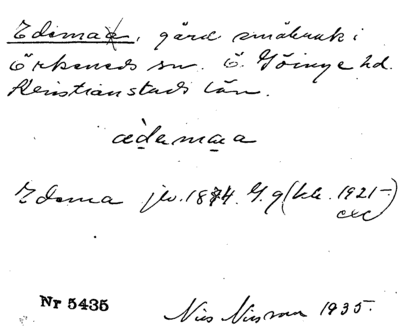 Edema, gård småbruk i
Örkeneds sn. Ö. Göinge hd.
Kristianstads län.
ædamaa
Edema jb. 1874. G. 9 (bl. 1921-
Nr 5435
Nils Nilsson 1935.